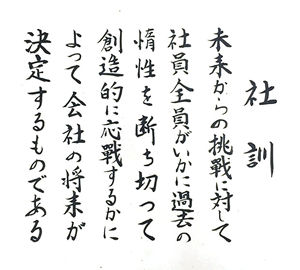 社訓
未来からの挑戦に対して
社員全員がいかに過去の
惰性を断ち切って
創造的に応戰するかに
よって会社の将来が
決定するものである